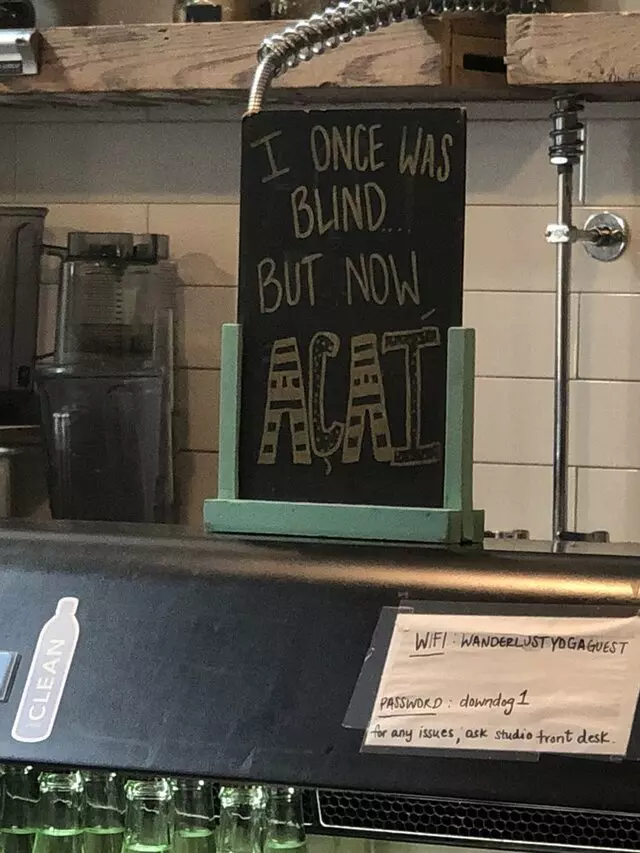 I ONCE WAS
BLIND....
BUT NOW
AÇAÍ
CLEAN
WIFI : WANDERLUSTYOGAGUEST
PASSWORD : downdog1
for any issues, ask studio front desk.